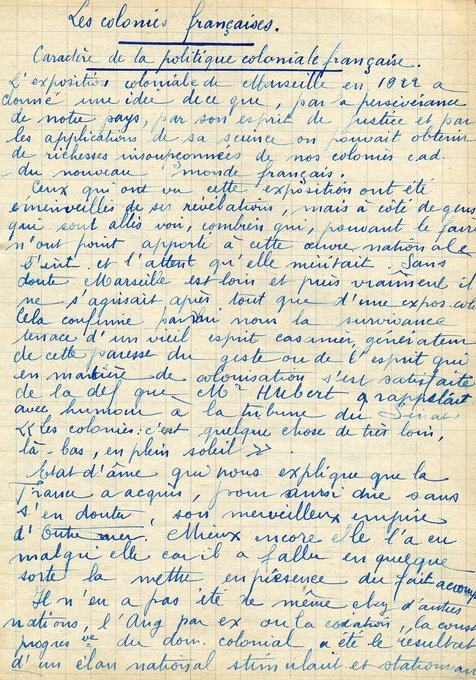 Les colonies françaises.
Caractère de la politique coloniale française.
L'exposition coloniale de Marseille en 1922 a
donné une idée de ce que, par la persévérance
de notre pays, par son esprit de justice et par
les applications de sa science on pouvait obtenir
de richesses insoupçonnées de nos colonies c.a.d.
du nouveau monde français.
Ceux qui ont vu cette exposition ont été
émerveillés de ses révélations, mais à côté de gens
qui sont allés voir, combien qui, pouvant le faire
n'ont point apporté à cette œuvre nationale
et l'attent qu'elle méritait. Sans
doute Marseille est loin et puis vraiment il
ne s'agissait après tout que d'une expos. cole
Cela confirme parmi nous la survivance
tenace d'un vieil esprit casanier, générateur
de cette paresse du geste ou de l'esprit qui
en matière de colonisation s'est satisfaite
de la def que Mr Hubert rappelait
avec humour à la tribune du Sénat.
« Les colonies : c'est quelque chose de très loin,
là-bas, en plein soleil ».
Etat d'âme qui nous explique que la
France a acquis, pour ainsi dire sans
s'en douter, son merveilleux empire
d'Outre mer. Mieux encore elle l'a eu
malgré elle car il a fallu en quelque
sorte la mettre en présence du fait accomp
Il n'en a pas été de même chez d'autres
nations, l'Ang par ex ou la création, la const
progres ve du dom. colonial a été le résultat
d'un élan national stimulant et